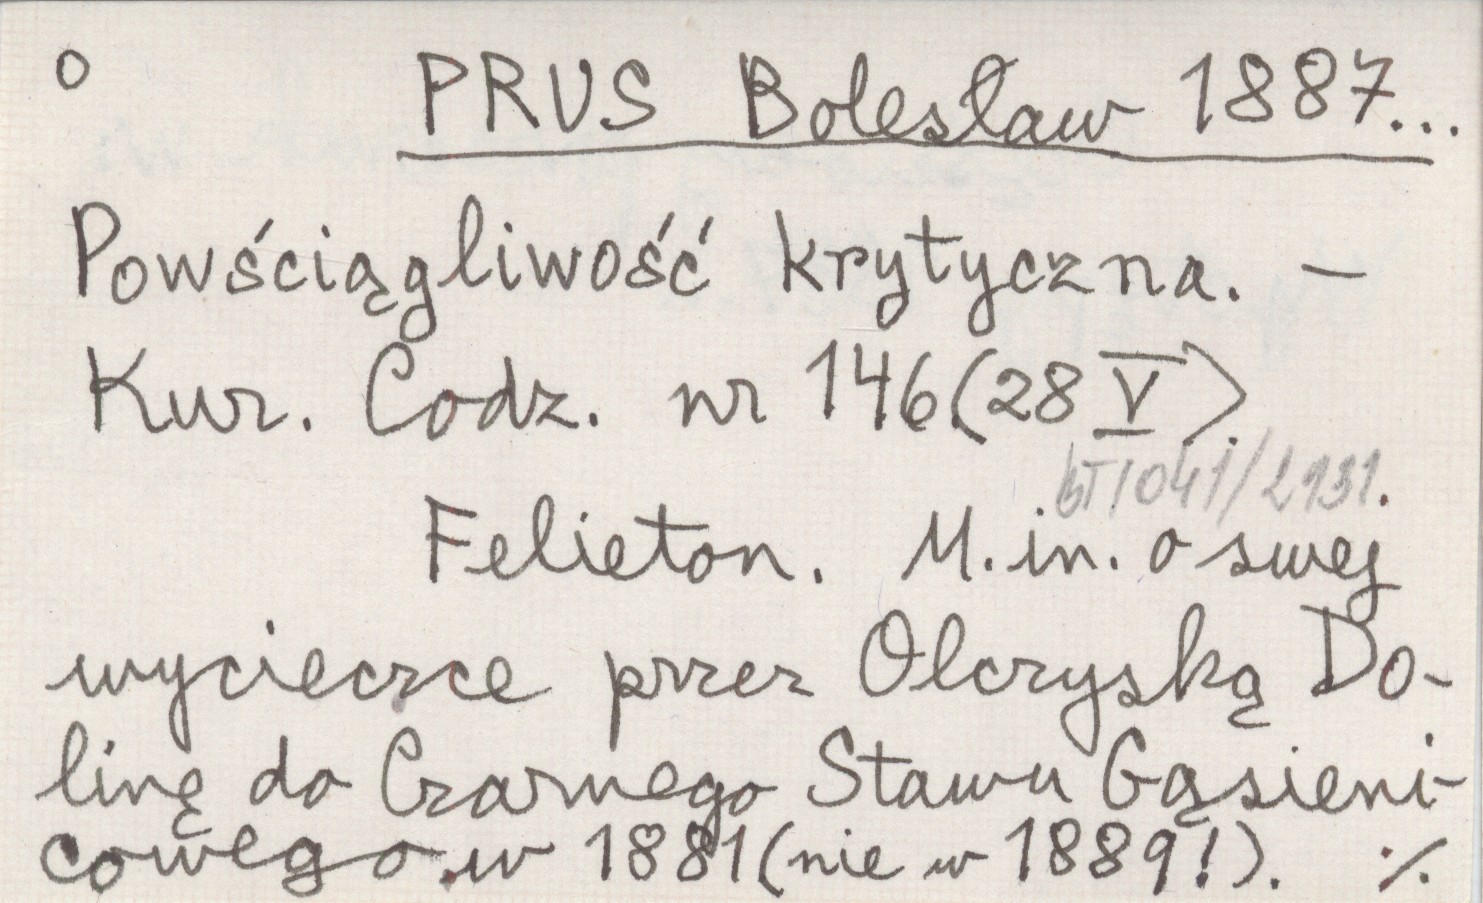 o PRUS Bolesław 1887...
Powściągliwość krytyczna. –
Kur. Codz. nr 146 (28 V).
bT/041/2931.
Felieton. M.in. o swej
wycieczce przez Olczyską Do-
linę do Czarnego Stawu Gąsieni-
cowego w 1881 (nie w 1889!). ./.